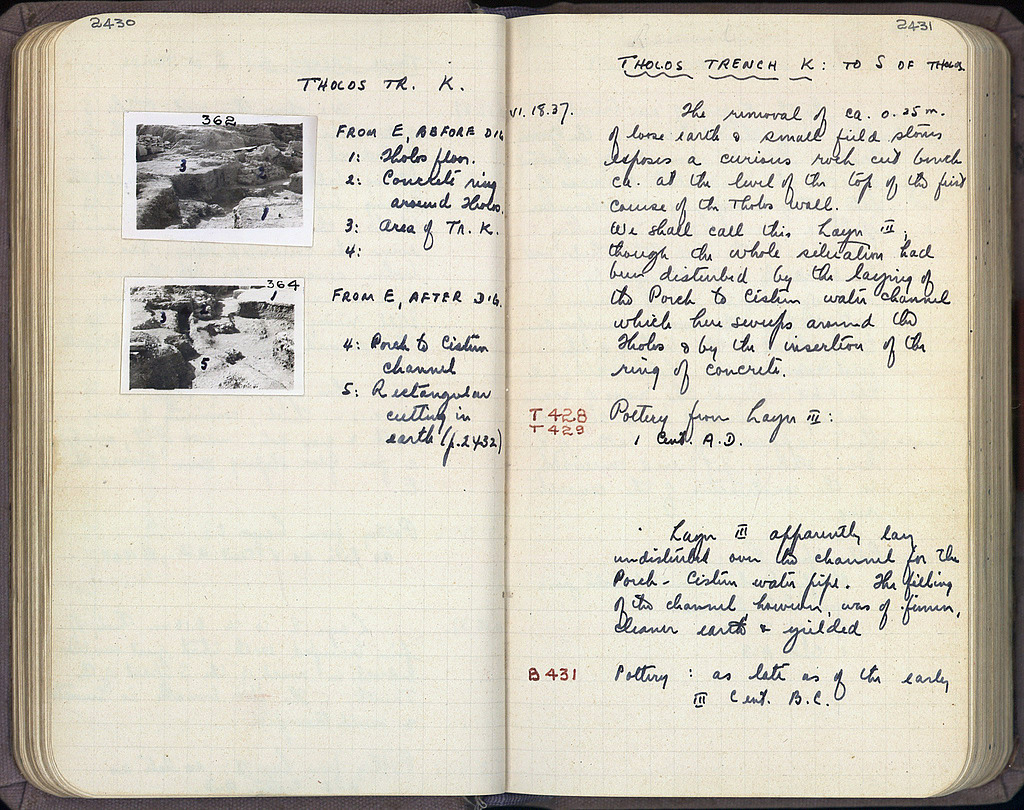 2430
THOLOS TR. K.
362
3
2
1
FROM E, BEFORE DIG
1: Tholos floor.
2: Concrete ring
around Tholos.
3: Area of Tr. K.
4:
364
1
3
5
FROM E, AFTER DIG.
4: Porch to Cistern
channel
5: Rectangular
cutting in
earth (p. 2432)
2431
THOLOS TRENCH K: TO S OF THOLOS
VI. 18.37.
The removal of ca. 0.35 m.
of loose earth & small field stones
exposes a curious rock cut bench
ca. at the level of the top of the first
course of the Tholos wall.
We shall call this Layer III,
though the whole situation had
been disturbed by the laying of
the Porch to Cistern water channel
which here sweeps around the
Tholos & by the insertion of the
ring of concrete.
T 428
T 429
Pottery from Layer III:
1 Cent. A.D.
Layer III apparently lay
undisturbed over the channel for the
Porch - Cistern water pipe. The filling
of the channel, however, was of firmer,
cleaner earth & yielded
B 431
Pottery : as late as of the early
III Cent. B.C.